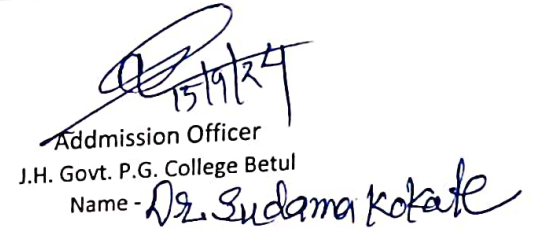 15/9/24
Addmission Officer
J.H. Govt. P.G. College Betul
Name - Dr. Sudama Kokate